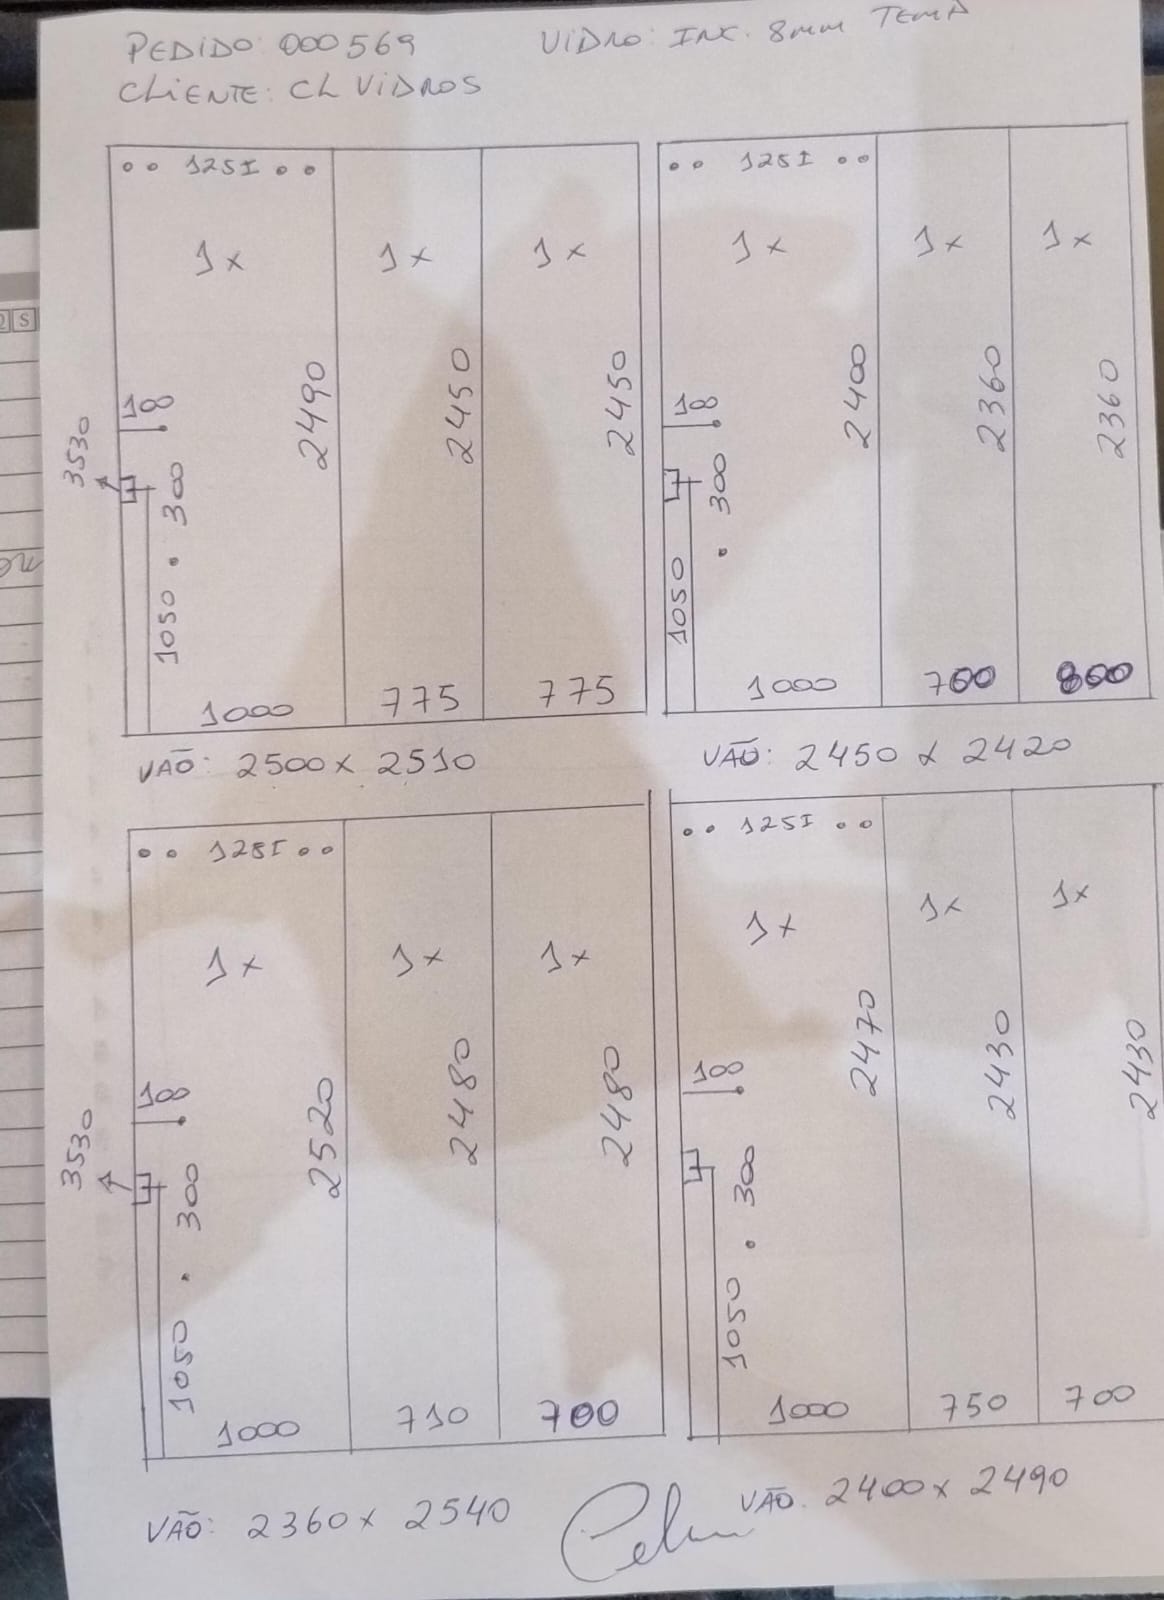 PEDIDO: 000569
VIDRO: INC. 8mm TEMP
CLIENTE: CL VIDROS
1251
1x
1x
1x
2490
2450
2450
100
3530
300
1050
1000
775
775
VÃO: 2500 x 2510
1251
1x
1x
1x
2400
2360
2360
100
300
1050
1000
700
800
VÃO: 2450 x 2420
1251
1x
1x
1x
2520
2480
2480
100
3530
300
1050
1000
710
700
VÃO: 2360 x 2540
1251
1x
1x
1x
2470
2430
2430
100
300
1050
1000
750
700
VÃO. 2400 x 2490
S